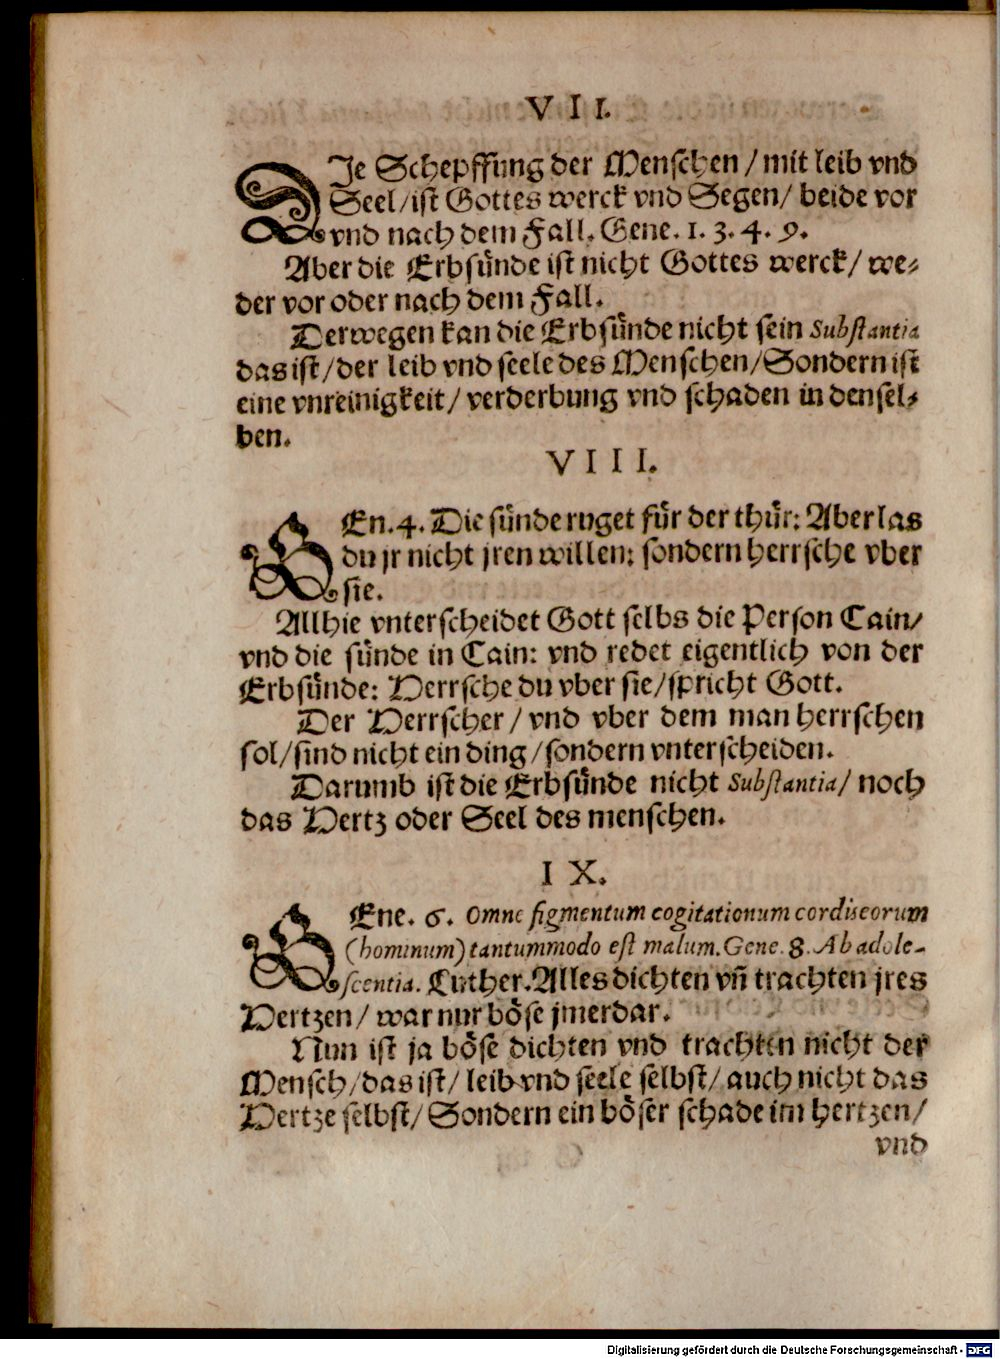 VII.
DJe Schepffung der Menschen / mit leib vnd
Seel / ist Gottes werck vnd Segen / beide vor
vnd nach dem Fall. Gene. 1. 3. 4. 9.
Aber die Erbsünde ist nicht Gottes werck / we⸗
der vor oder nach dem Fall.
Derwegen kan die Erbsünde nicht sein Substantia
das ist / der leib vnd seele des Menschen / Sondern ist
eine vnreinigkeit / verderbung vnd schaden in densel⸗
ben.
VIII.
GEn. 4. Die sünde ruget für der thür: Aber las
du jr nicht jren willen: sondern herrsche vber
sie.
Allhie vnterscheidet Gott selbs die Person Cain /
vnd die sünde in Cain: vnd redet eigentlich von der
Erbsünde: Herrsche du vber sie / spricht Gott.
Der Herrscher / vnd vber dem man herrschen
sol / sind nicht ein ding / sondern vnterscheiden.
Darumb ist die Erbsünde nicht Substantia / noch
das Hertz oder Seel des menschen.
IX.
GEne. 6. Omne figmentum cogitationum cordis eorum
(hominum) tantummodo est malum. Gene. 8. Ab adole-
scentia. Luther. Alles dichten vñ trachten jres
Hertzen / war nur böse jmerdar.
Nun ist ja böse dichten vnd trachten nicht der
Mensch / das ist / leib vnd seele selbst / auch nicht das
Hertze selbst / Sondern ein böser schade im hertzen /
vnd
Digitalisierung gefördert durch die Deutsche Forschungsgemeinschaft - DFG